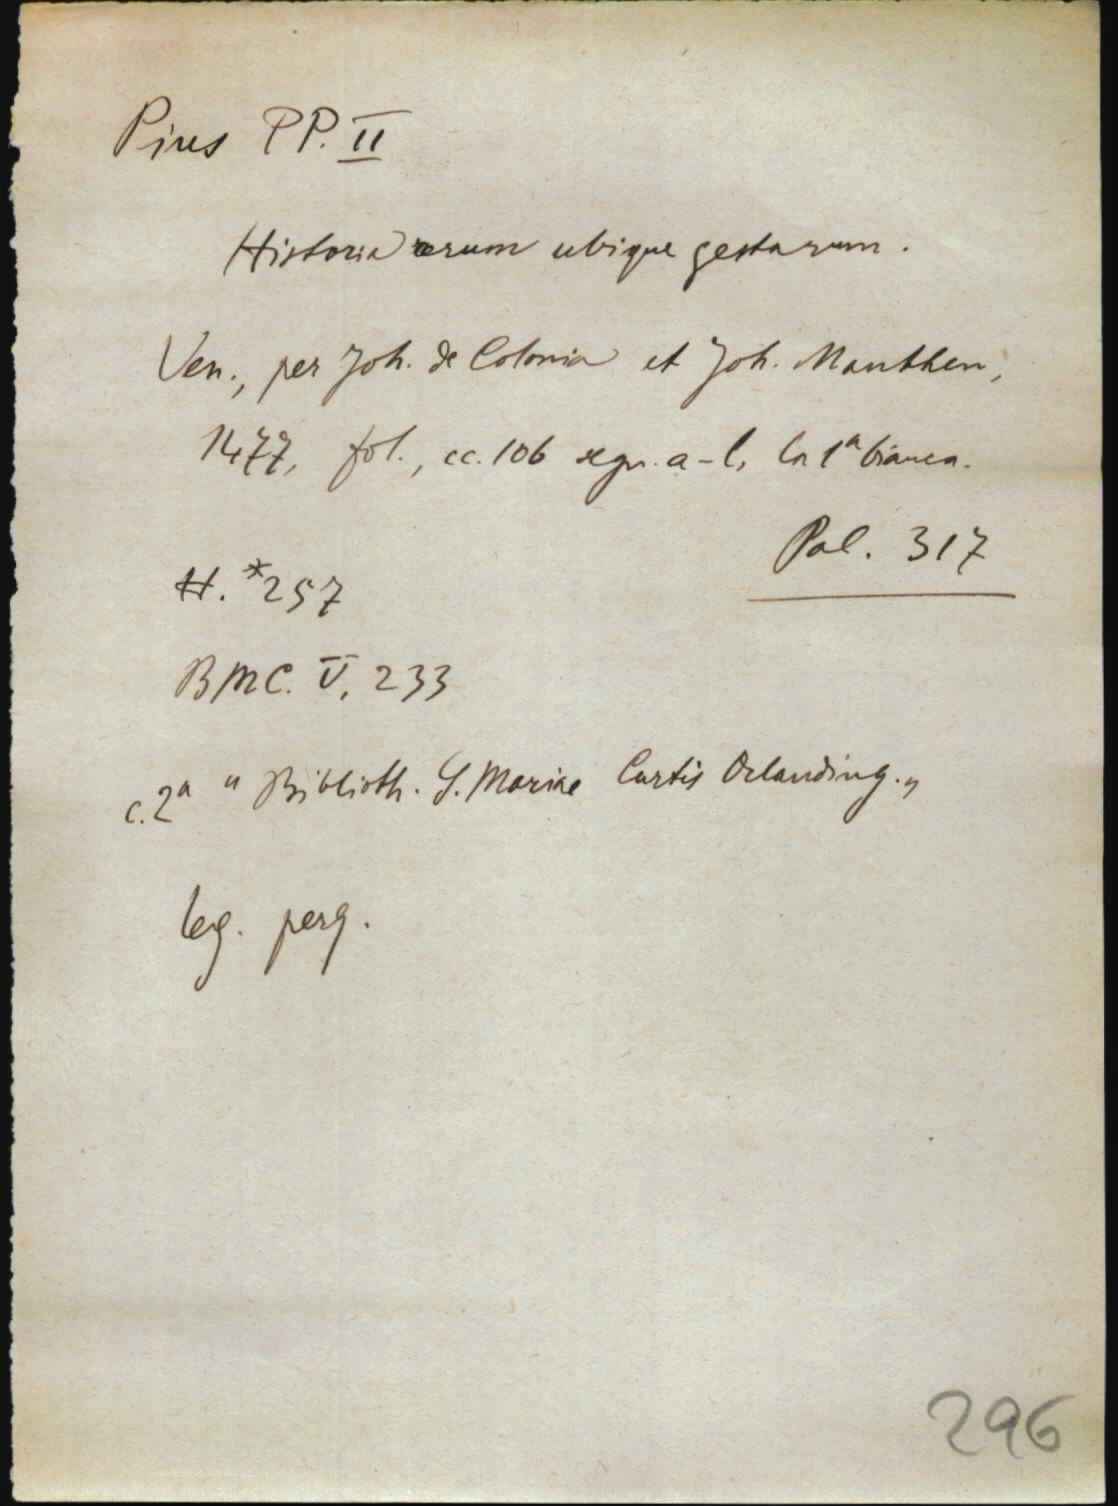 Pius PP. II
Historia rerum ubique gestarum.
Ven., per Joh. de Colonia et Joh. Manthen,
1477, fol., cc. 106 segn. a-l, la 1ª bianca.
Pal. 317
H. *257
BMC. V, 233
c. 2ª " Biblioth. S. Mariae Curtis Orlanding. „
leg. perg.
296